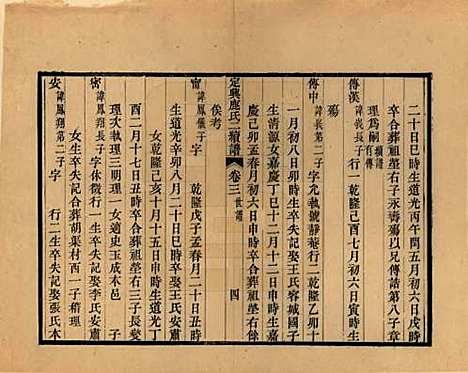 二十日巳時生道光丙午閏五月初六日戌時
卒合葬祖塋右子永壽殤以兄傳誥第八子章
理為嗣續譜有傳
傳漢諱長子行一乾隆己酉七月初六日寅時生
殤
傳中諱長第二子字允執號靜菴行二乾隆乙卯十
一月初八日卯時生卒失記娶王氏容城國子
生清淑女嘉慶丁巳十二月十二日申時生嘉
慶己卯孟春月初六日申時卒合葬祖塋右餘
俟考
定興鹿氏續譜 卷三 世譜 四
甯諱鳳儀子字 乾隆戊子孟春月二十日丑時
生道光辛卯八月二十日巳時卒娶王氏安肅
女乾隆己亥十月十五日申時生道光丁
酉二月十七日丑時卒合葬祖塋右三子長燮
理次執理三明理一女適史玉成本邑 子
密諱鳳翔長子字休微行一生卒失記娶李氏安肅
女生卒失記合葬胡葉村西一子精理
安諱鳳翔第二子字 行二生卒失記娶張氏本